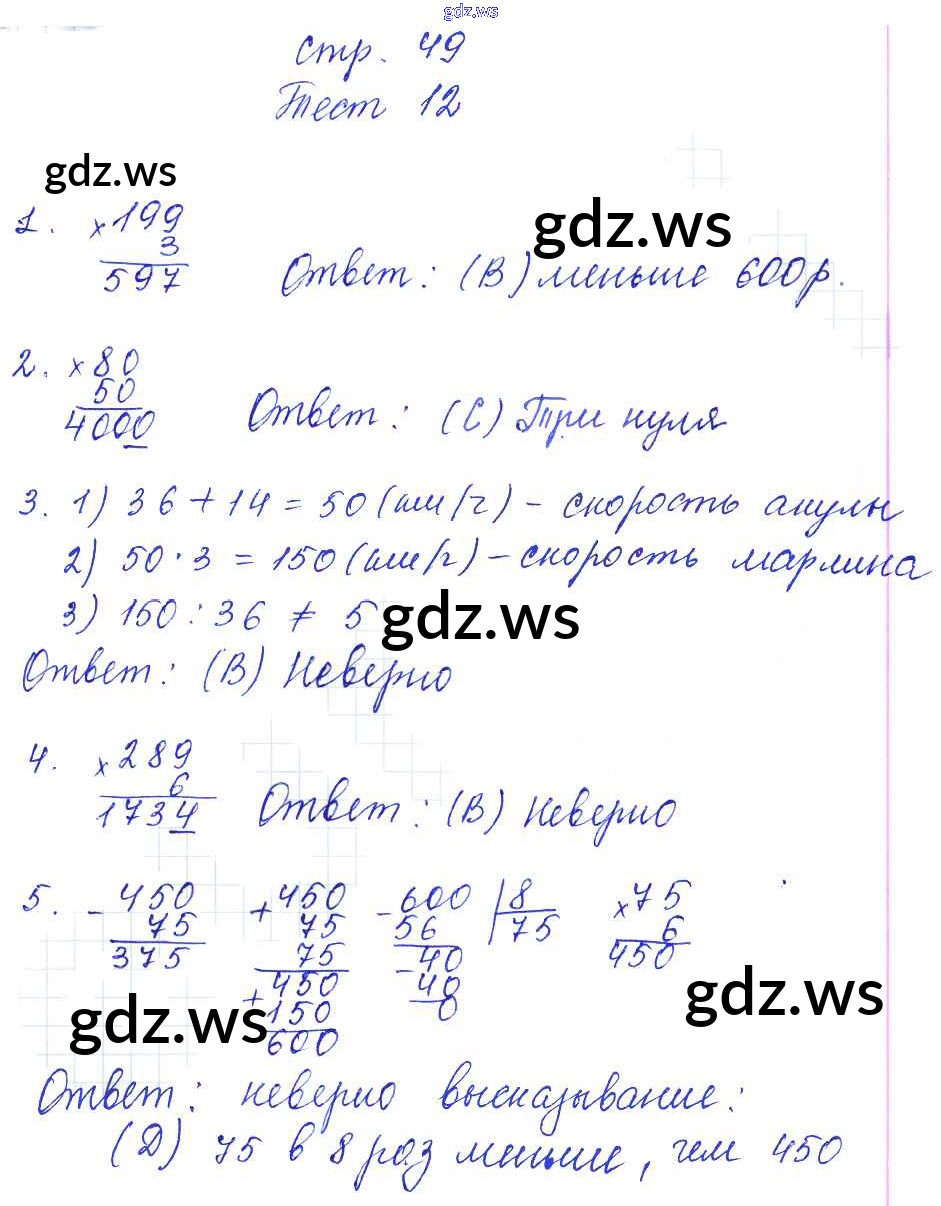 gdz.ws
стр. 49
Тест 12
gdz.ws
1. × 199
3
597
Ответ: (В) меньше 600 р.
gdz.ws
2. × 80
50
4000
Ответ: (С) Три нуля
3. 1) 36 + 14 = 50 (км/ч) – скорость акулы
2) 50 · 3 = 150 (км/ч) – скорость марлина
3) 150 : 36 ≠ 5
gdz.ws
Ответ: (В) Неверно
4. × 289
6
1734
Ответ: (В) Неверно
5. - 450
75
375
+ 450
75
75
+ 450
150
600
- 600 | 8
56 | 75
- 40
40
0
× 75
6
450
gdz.ws
gdz.ws
Ответ: неверно высказывание:
(D) 75 в 8 раз меньше, чем 450